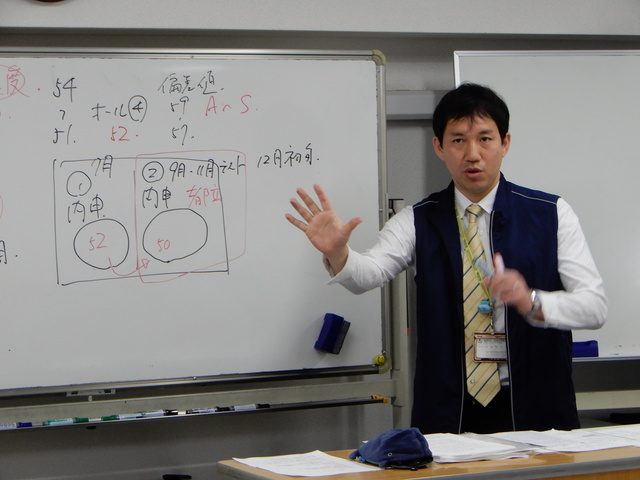 度. 54 偏差値.
オール④ 59 A~S.
51. 52. 57.
7月 9月・11月テスト 12月初旬.
① ②
内申 内申 都立
52 50